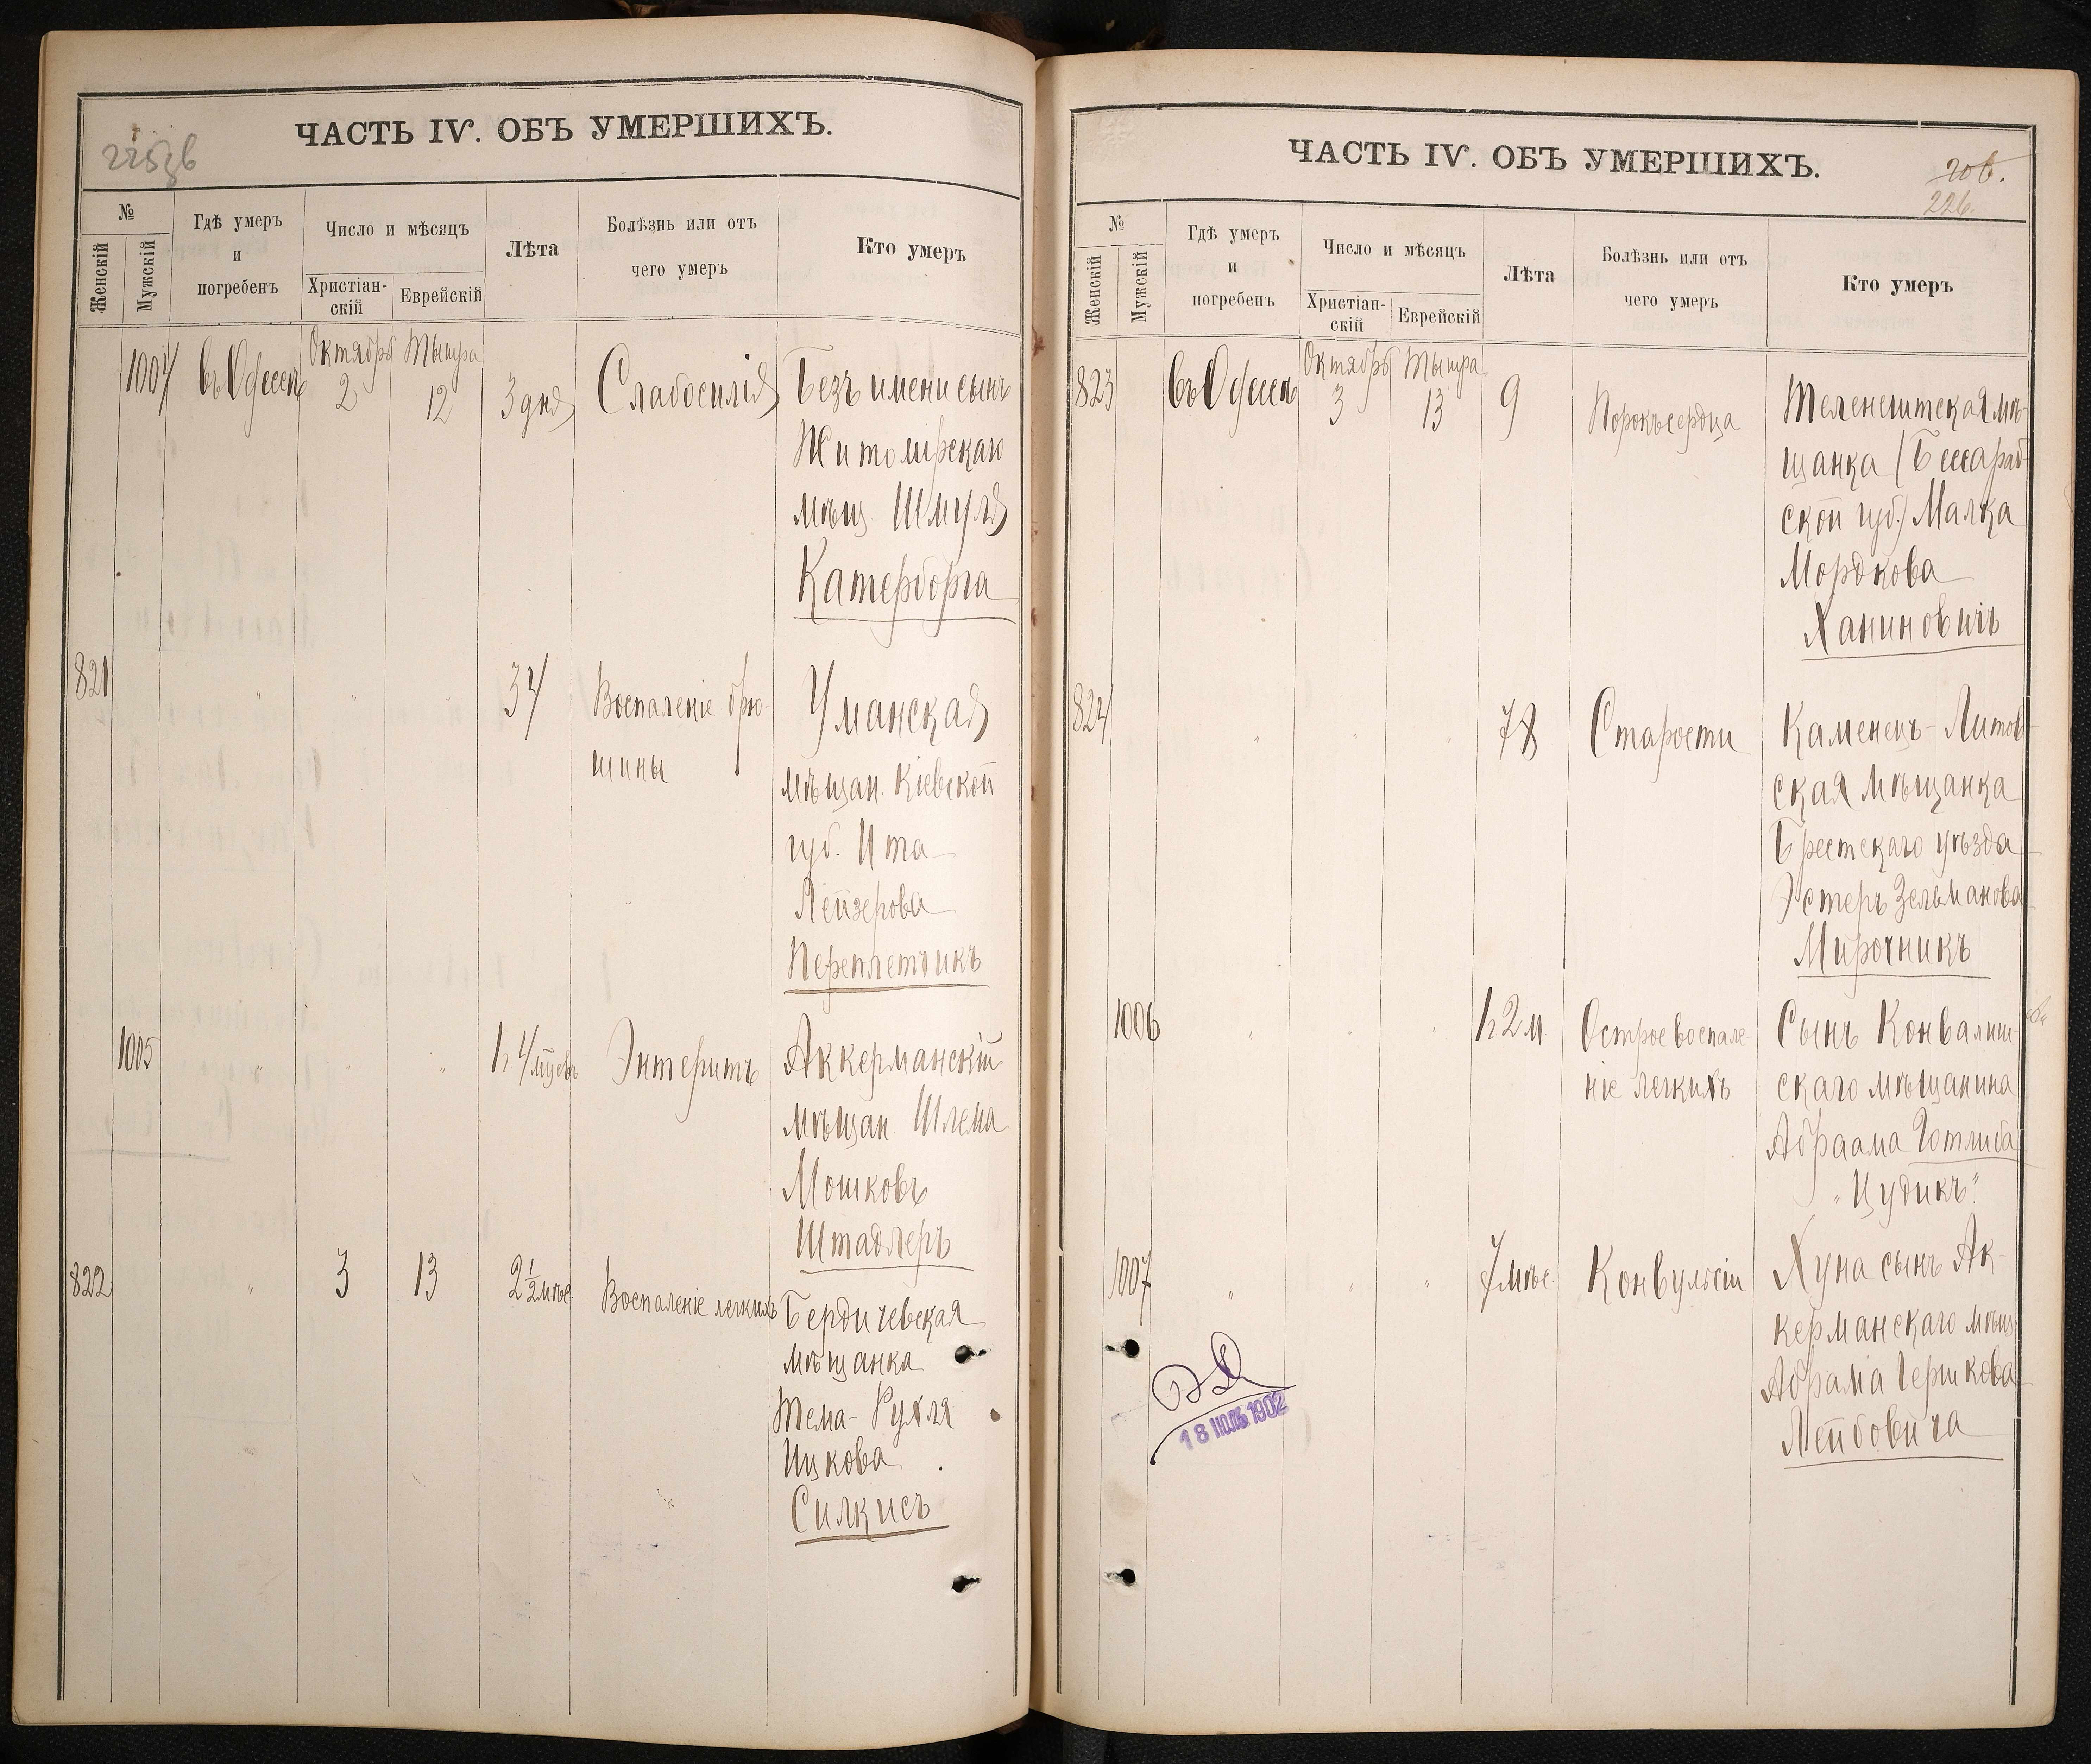 225зв
ЧАСТЬ IV. ОБЪ УМЕРШИХЪ.
№
Женскій
Мужскій
Гдѣ умеръ
и
погребенъ
Число и мѣсяцъ
Христіан-
скій
Еврейскій
Лѣта
Болѣзнь или отъ
чего умеръ
Кто умеръ
Октябрь Тышра
1004 въ Одессѣ 2 12 3 дня Слабосилія Безъ имени сынъ
Житомірскаго
мѣщ. Шмуля
Катерборга
821 " " " 34 Воспаленіе брю- Уманская
шины мѣщан. Кіевской
губ. Ита
Лейзерова
Переплетчикъ
1005 " " " Энтеритъ Аккерманскій
мѣщан. Шлема
Мошковъ
Штадлеръ
822 " 3 13 2½ мѣс. Воспаленіе легкихъ Бердичевская
мѣщанка
Тема-Рухля
Ицкова
Силкисъ
ЧАСТЬ IV. ОБЪ УМЕРШИХЪ.
206.
226.
№
Женскій
Мужскій
Гдѣ умеръ
и
погребенъ
Число и мѣсяцъ
Христіан-
скій
Еврейскій
Лѣта
Болѣзнь или отъ
чего умеръ
Кто умеръ
Октябрь Тышра
823 въ Одессѣ 3 13 9 Порокъ сердца Теленештская мѣ-
щанка (Бессараб-
ской губ.) Малка
Мордкова
Ханиновичъ
824 " " " 78 Старости Каменецъ-Литов-
ская мѣщанка
Брестскаго уѣзда
Эстеръ Зельманова
Мирочникъ
1006 " " " 2 м. Острое воспале- Сынъ Конвалиш-
ніе легкихъ скаго мѣщанина
Абраама Готлиба
"Цудикъ".
1007 " " " 7 мѣс. Конвульсіи Хуна сынъ Ак-
керманскаго мѣщ.
Абрама Гершкова
Лейбовича
18 ИЮЛЬ 1902